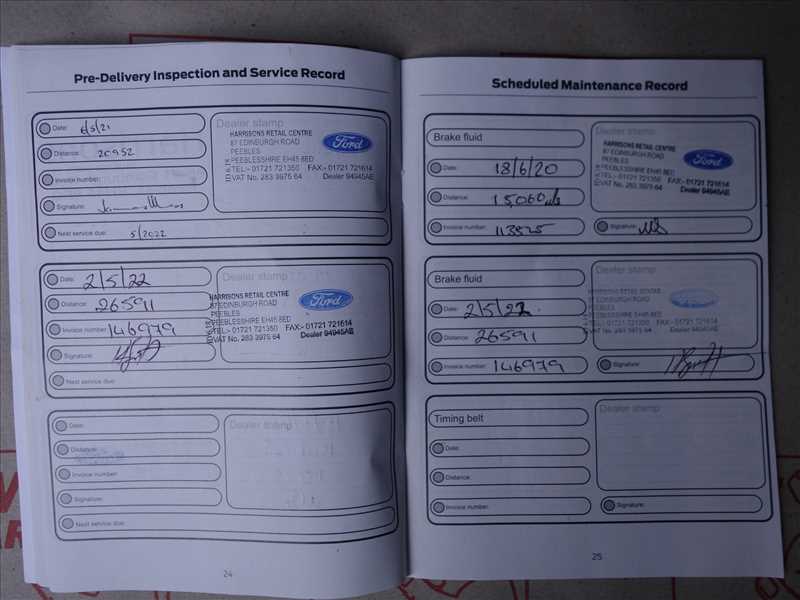 Pre-Delivery Inspection and Service Record
Date: 6/5/21
Distance: 20952
Invoice number:
Signature:
Next service due: 5/2022
Dealer stamp
HARRISONS RETAIL CENTRE
87 EDINBURGH ROAD
PEEBLES
PEEBLESSHIRE EH45 8ED
TEL:- 01721 721350 FAX:- 01721 721614
VAT No. 283 3975 64 Dealer 94945AB
Ford
Date: 2/5/22
Distance: 26591
Invoice number: 146979
Signature:
Next service due:
Dealer stamp
HARRISONS RETAIL CENTRE
87 EDINBURGH ROAD
PEEBLES
PEEBLESSHIRE EH45 8ED
TEL:- 01721 721350 FAX:- 01721 721614
VAT No. 283 3975 64 Dealer 94945AB
Ford
Date:
Distance:
Invoice number:
Signature:
Next service due:
Dealer stamp
24
Scheduled Maintenance Record
Brake fluid
Date: 18/6/20
Distance: 15,060
Invoice number: 113525
Dealer stamp
HARRISONS RETAIL CENTRE
87 EDINBURGH ROAD
PEEBLES
PEEBLESSHIRE EH45 8ED
TEL:- 01721 721350 FAX:- 01721 721614
VAT No. 283 3975 64 Dealer 94945AB
Ford
Signature:
Brake fluid
Date: 2/5/22.
Distance: 26591
Invoice number: 146979
Dealer stamp
HARRISONS RETAIL CENTRE
87 EDINBURGH ROAD
PEEBLES
PEEBLESSHIRE EH45 8ED
TEL:- 01721 721350 FAX:- 01721 721614
VAT No. 283 3975 64 Dealer 94945AB
Signature:
Timing belt
Date:
Distance:
Invoice number:
Dealer stamp
Signature:
25